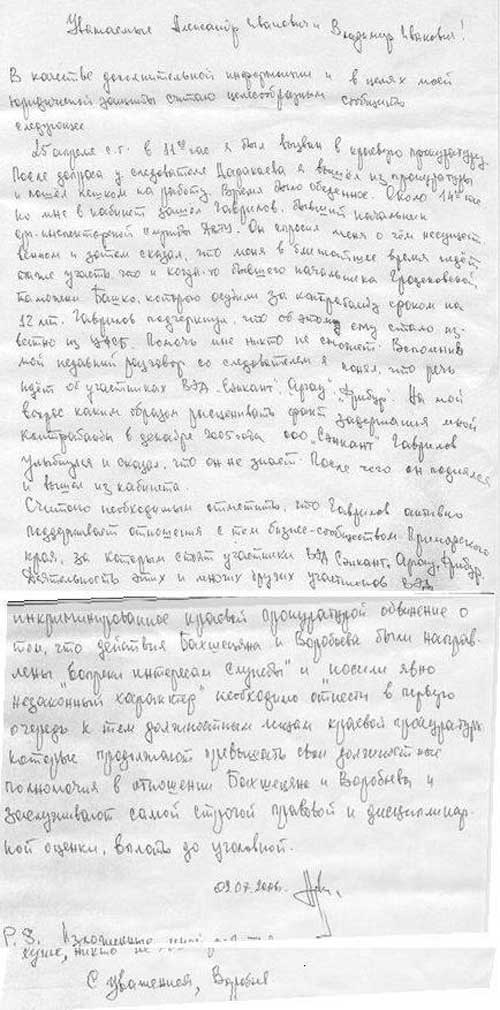 Уважаемые Александр Иванович и Владимир Иванович!
В качестве дополнительной информации и в целях моей
юридической защиты считаю целесообразным сообщить
следующее
25 апреля с.г. в 11 час я был вызван в краевую прокуратуру.
После допроса у следователя я вышел из прокуратуры
и пошёл пешком на работу. Время было обеденное. Около 14 час
ко мне в кабинет зашел Гаврилов, бывший начальник
инспекторской службы ДВТУ. Он спросил меня о чём несущест-
венном и затем сказал, что меня в ближайшее время ждёт
такая участь, что и когда-то бывшего начальника Гродековской
таможни Башко, которого осудили за контрабанду сроком на
12 лет. Гаврилов подчеркнул, что об этом ему стало из-
вестно из УФСБ. Помочь мне никто не сможет. Вспомнив
мой недавний разговор со следователем я понял, что речь
идёт об участниках ВЭД "Сэнкант", "Арау", "Фрибур". На мой
вопрос каким образом расценивать факт задержания мной
контрабанды в декабре 2005 года ООО "Сэнкант" Гаврилов
улыбнулся и сказал, что он не знает. После чего он поднялся
и вышел из кабинета.
Считаю необходимым отметить, что Гаврилов активно
поддерживает отношения с тем бизнес-сообществом Приморского
края, за которым стоят участники ВЭД Сэнкант, Арау, Фрибур.
Деятельность этих и многих других участников ВЭД
инкриминированное краевой прокуратурой обвинение о
том, что действия Бахшецяна и Воробьева были направ-
лены "вопреки интересам службы" и "носили явно
незаконный характер" необходимо отнести в первую
очередь к тем должностным лицам краевой прокуратуры
которые продолжают превышать свои должностные
полномочия в отношении Бахшецяна и Воробьева и
заслуживают самой строгой правовой и дисциплинар-
ной оценки, вплоть до уголовной.
02.07.2006.
P.S. Изложенное
хуже, никто не
С уважением, Воробьев